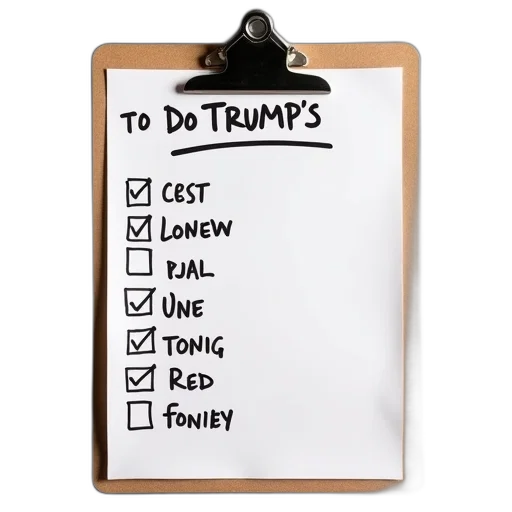 TO DO TRUMP'S
CBST
LONEW
PJAL
UNE
TONIG
RED
FONIEY